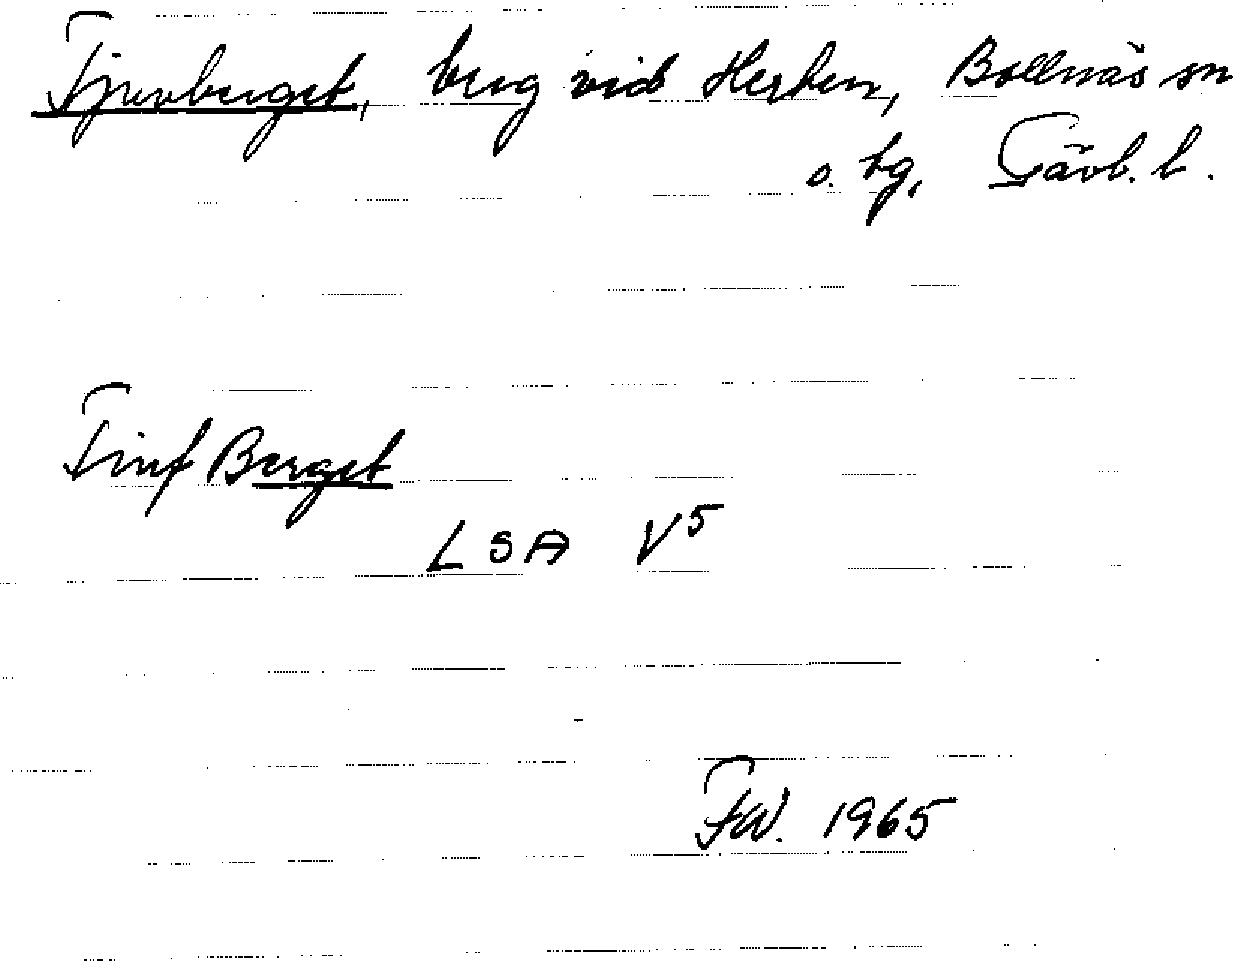 Tjuvberget, berg vid Herten, Bollnäs sn
o. tg, Gävb. l.
Tiuf Berget
LSA V5
FW. 1965